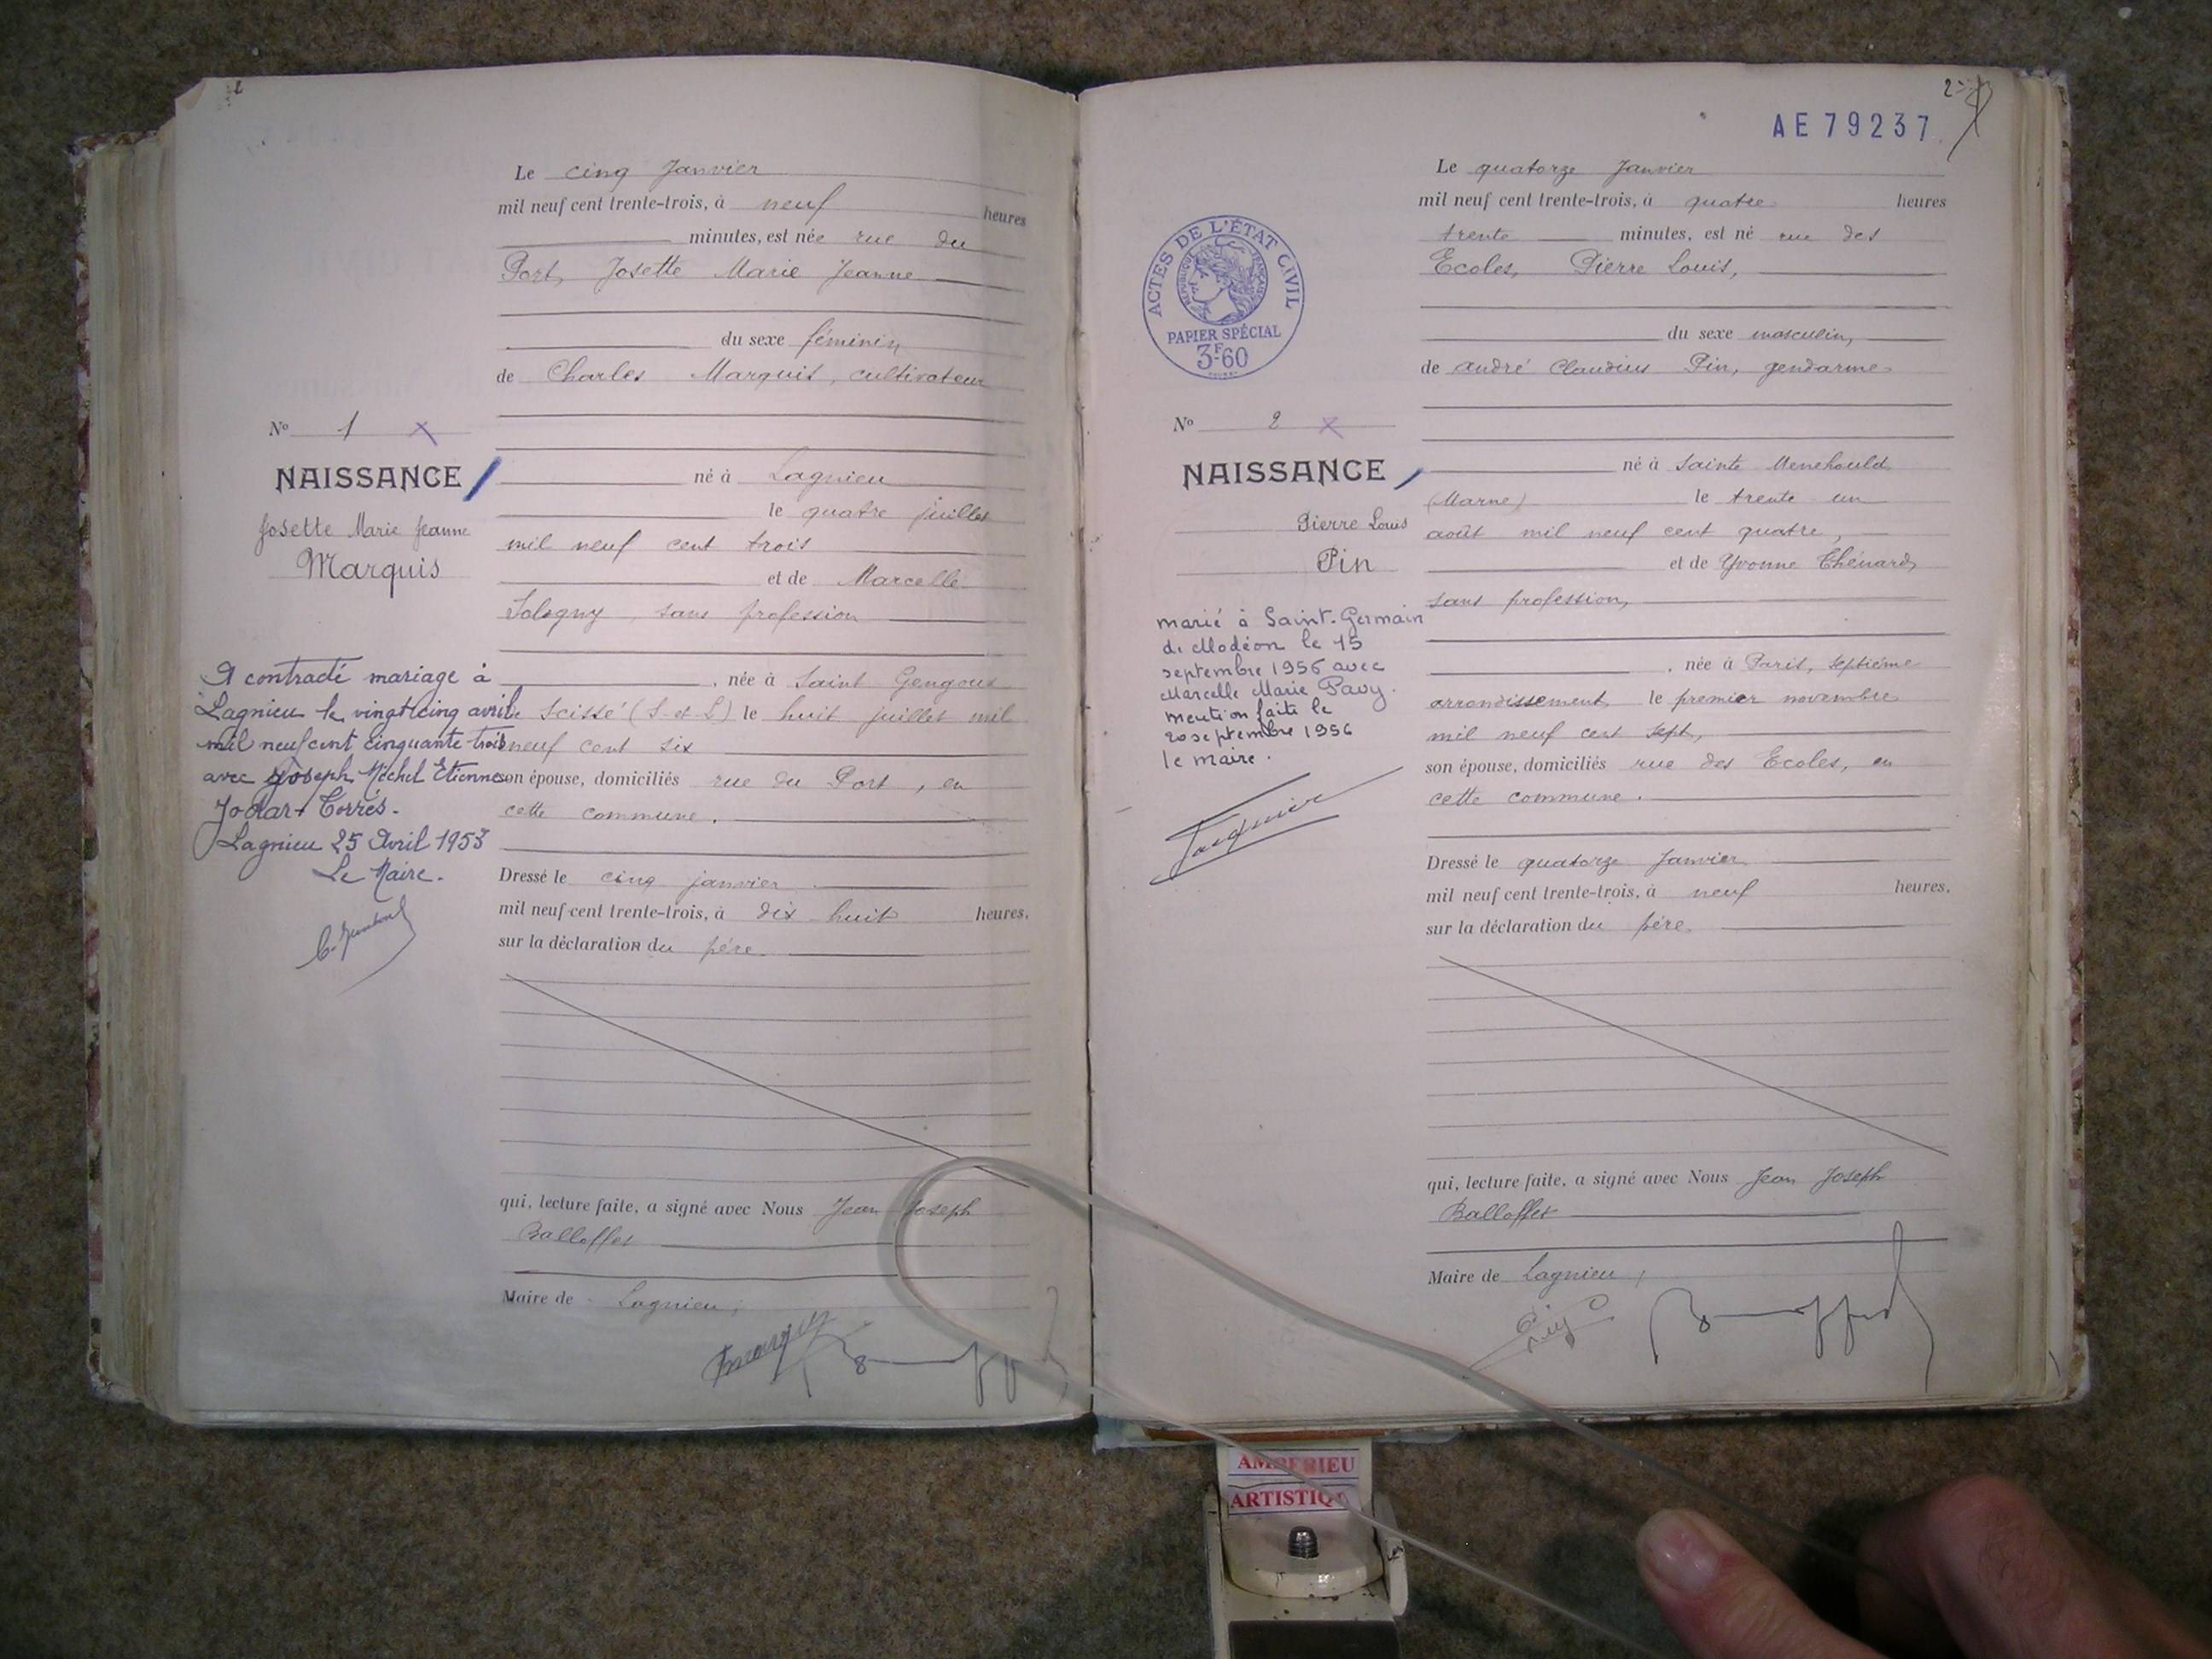 Le cinq Janvier
mil neuf cent trente-trois, à neuf heures
minutes, est née rue du
Port, Josette Marie Jeanne
du sexe féminin
de Charles Marquis, cultivateur
né à Lagnieu
le quatre juillet
mil neuf cent trois
et de Marcelle
Sologny, sans profession
, née à Saint Gengoux
de Scissé (S-et-L) le huit juillet mil
neuf cent six
son épouse, domiciliés rue du Port, en
cette commune.
Dressé le cinq janvier
mil neuf cent trente-trois, à dix huit heures.
sur la déclaration du père
qui, lecture faite, a signé avec Nous Jean Joseph
Balloffet
Maire de Lagnieu,
No 1 X
NAISSANCE
Josette Marie Jeanne
Marquis
A contracté mariage à
Lagnieu le vingt cinq avril
mil neuf cent cinquante trois
avec Joseph Michel Etienne
Torrés.
Lagnieu 25 Avril 1953
Le Maire.
2
AE 79237
ACTES DE L'ÉTAT CIVIL
RÉPUBLIQUE FRANÇAISE
PAPIER SPÉCIAL
3F60
Le quatorze Janvier
mil neuf cent trente-trois, à quatre heures
trente minutes, est né rue des
Ecoles, Pierre Louis,
du sexe masculin,
de André Claudius Pin, gendarme
né à Sainte Menehould
(Marne) le trente un
août mil neuf cent quatre,
et de Yvonne Chénard,
sans profession,
, née à Paris, septième
arrondissement, le premier novembre
mil neuf cent sept,
son épouse, domiciliés rue des Ecoles, en
cette commune.
Dressé le quatorze Janvier
mil neuf cent trente-trois, à neuf heures.
sur la déclaration du père
qui, lecture faite, a signé avec Nous Jean Joseph
Balloffet
Maire de Lagnieu,
No 2 X
NAISSANCE
Pierre Louis
Pin
marié à Saint-Germain
de Modéon le 15
septembre 1956 avec
Marcelle Marie Pavy.
mention faite le
20 septembre 1956
le maire.
AMBERIEU
ARTISTIQ